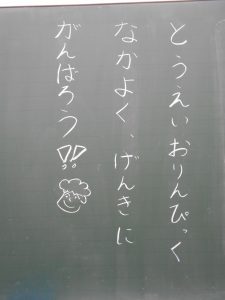 とうえいおりんぴっく
なかよく、げんきに
がんばろう!!